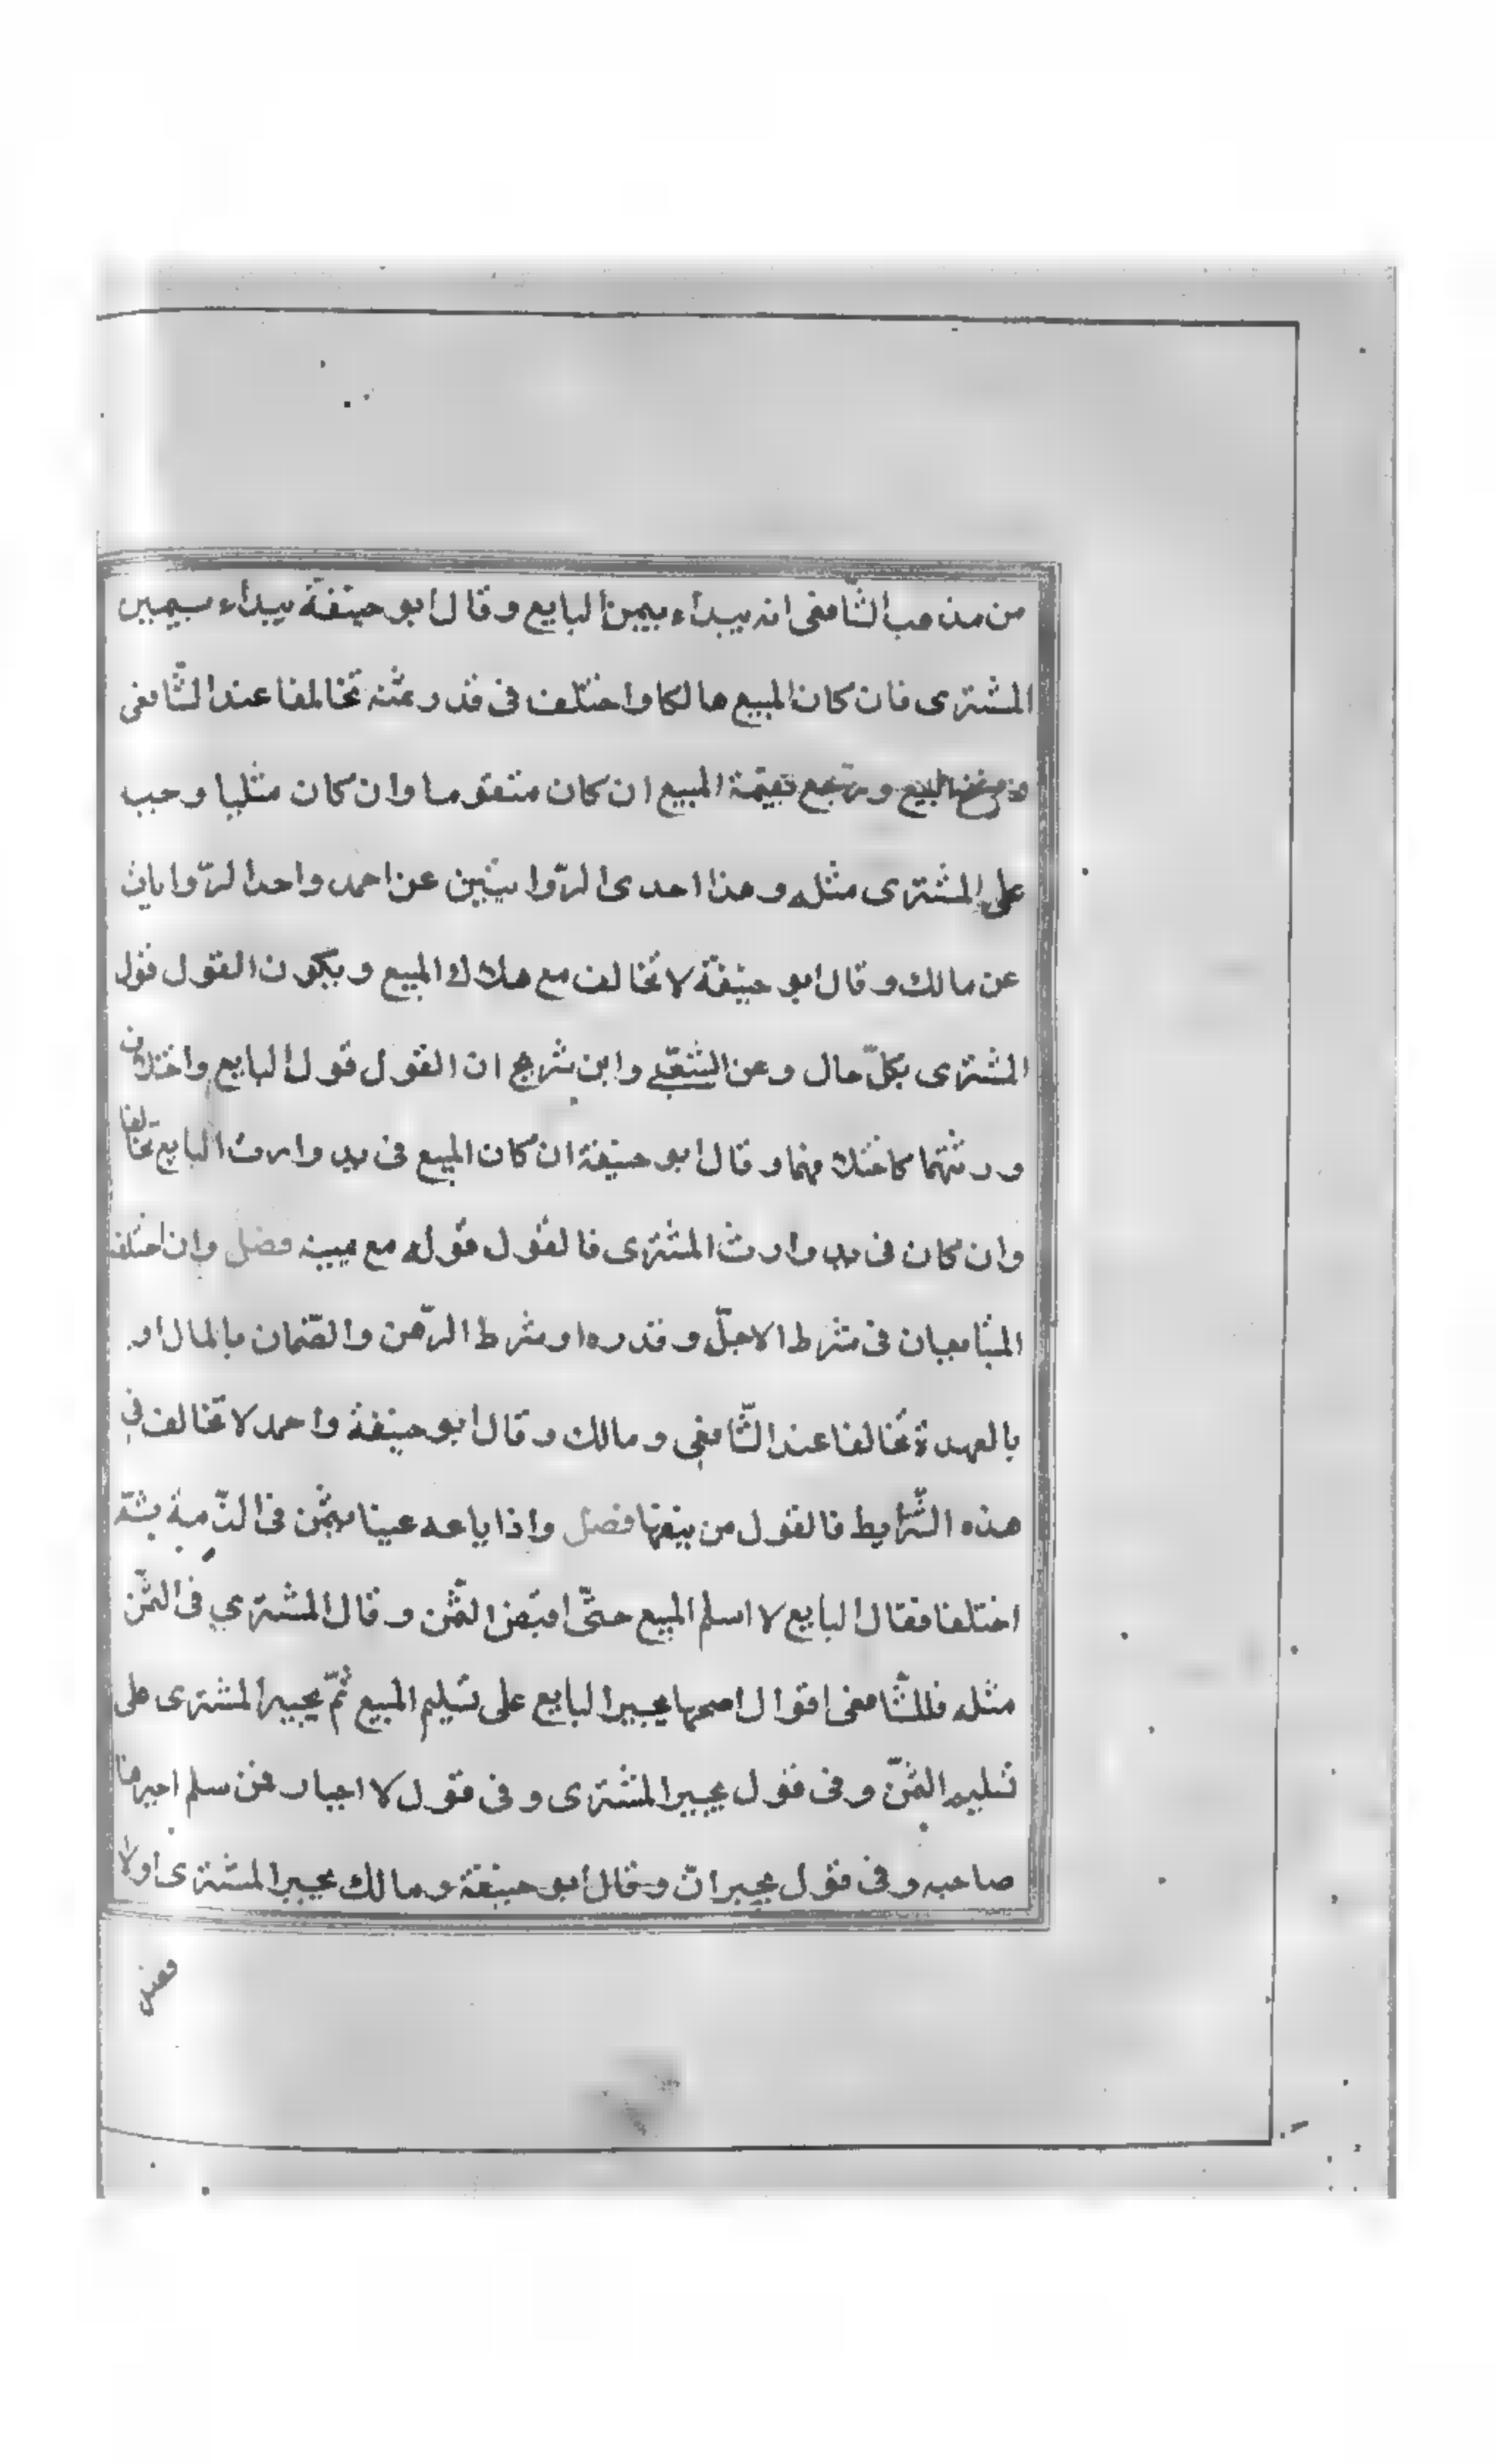 من مذهب الشّافعى انه يبداء بيمين البايع وقال ابو حنيفة يبداء بيمين
المشترى فان كان المبيع هالكا واختلف فى قدر ثمنه تخالفا عند الشّافعى
البيع ويرجع بقيمة المبيع ان كان متقوما وان كان مثليا وجب
على المشترى مثله وهذا احدى الرّوايتين عن احمد واحدا لرّوايات
عن مالك وقال ابو حنيفة لا تخالف مع هلاك المبيع ويكون القول قول
المشترى بكلّ حال وعن الشعبى وابن شريح ان القول قول البايع واختلاف
ورثتهما كاختلافهما وقال ابو حنيفة ان كان المبيع فى يد وارث البايع تخالفا
وان كان فى يد وارث المشترى فالقول قوله مع يمينه فصل وان اختلف
المتبايعان فى شرط الاجلّ وقدره او شرط الرّهن والضّمان بالمال او
بالعهدة تخالفا عند الشّافعى ومالك وقال ابو حنيفة واحمد لا تخالف فى
هذه الشّرايط فالقول من ينفيها فصل واذا باعه عينا بثمن فى الذّمة ثمّ
اختلفا فقال البايع لا اسلم المبيع حتّى اقبض الثّمن وقال المشترى فى الثمّن
مثله فللشّافعى اقوال اصحها يجبر البايع على تسليم المبيع ثمّ يجبر المشترى على
تسليم الثمنّ وفى قول يجبر المشترى وفى قول لا اجبار فمن سلم اجبرها
صاحبه وفى قول يجبران وقال ابو حنيفة ومالك يجبر المشترى اولا
فصل